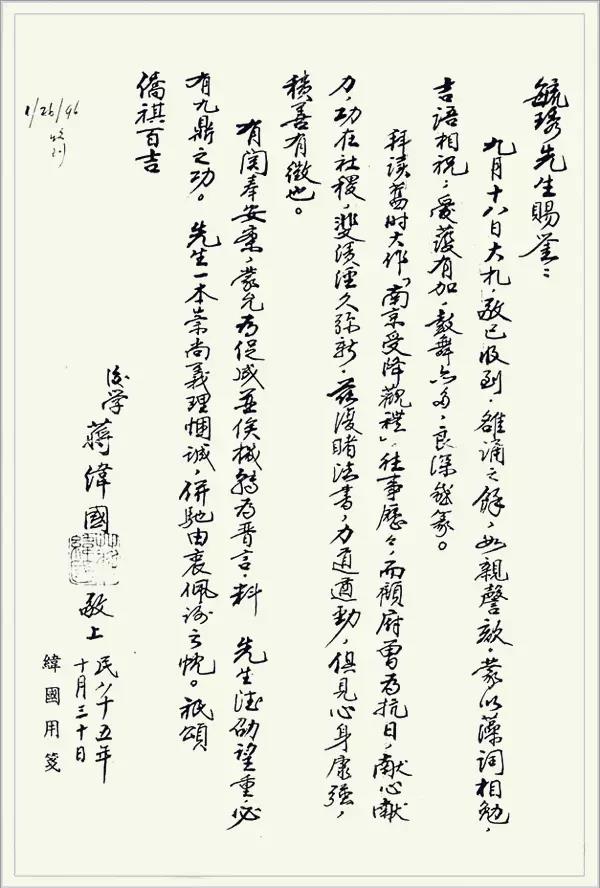 毓琇先生賜鑒：
九月十八日大札，敬已收到，雒誦之餘，如親謦欬，蒙以藻詞相勉，
吉語相祝，愛護有加，鼓舞亦多，良深銘篆。
拜讀舊時大作「南京受降觀禮」往事歷々，而顧府曾為抗日，獻心獻
力，功在社稷，斐漬湮久彌新，茲復睹法書，力道遒勁，俱見心身康強，
積善有徵也。
有関奉安案，蒙允為促成並俟機轉為晉言，料 先生德劭望重，必
有九鼎之功。 先生一本崇尚義理悃誠，併馳由衷佩謝之忱。祇頌
僑祺百吉
後学 蔣緯國 敬上
民八十五年
十月三十日
緯國用箋
1/26/96